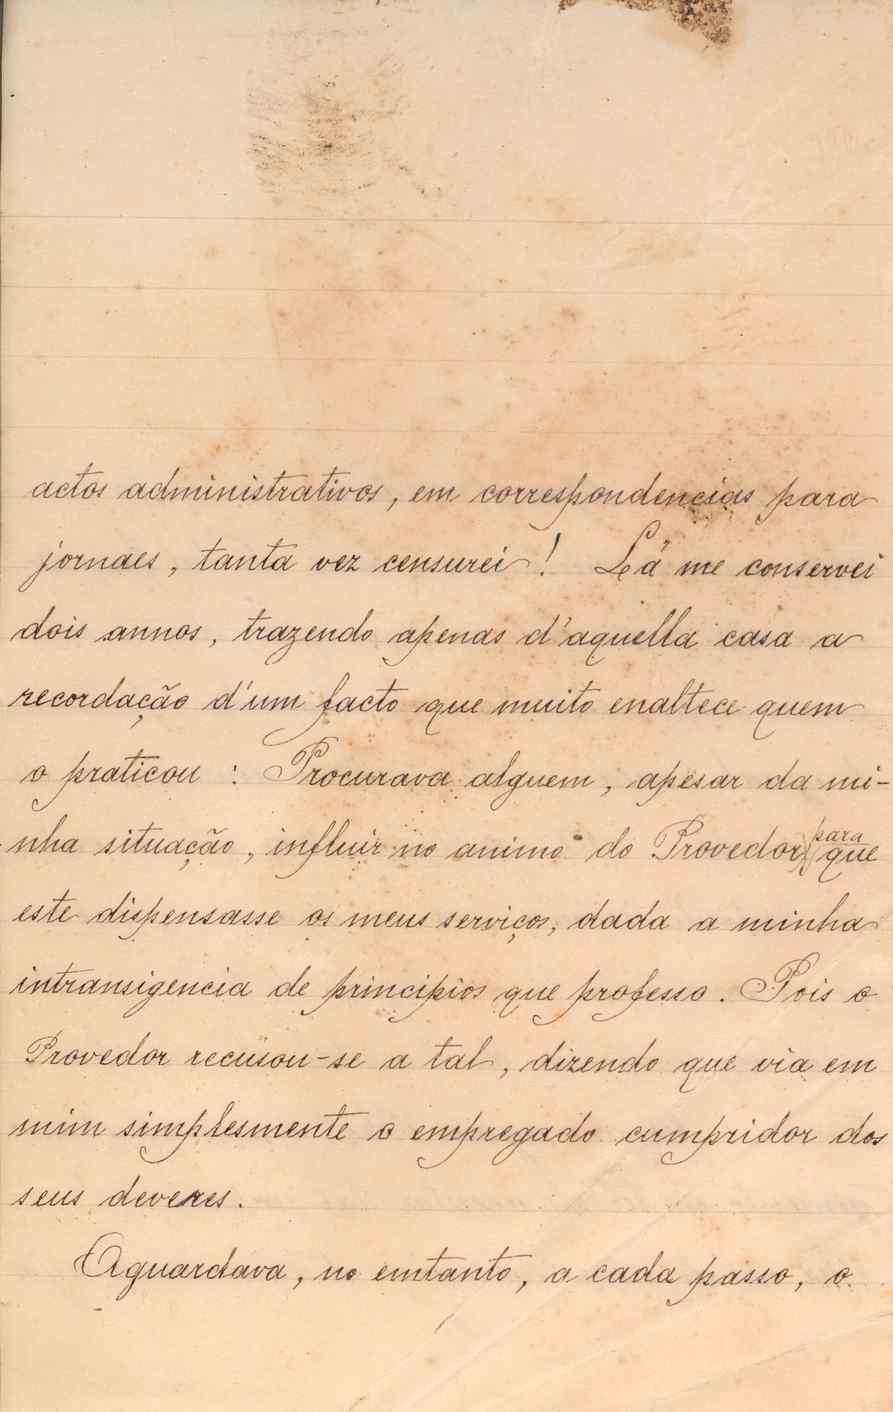 actos administrativos, em correspondencias para
jornaes, tanta vez censurei! Lá me conservei
dois annos, trazendo apenas d'aquella casa a
recordação d'um facto que muito enaltece quem
o praticou : Procurava alguem, apesar da mi-
nha situação, influir no animo do Provedor para que
este dispensasse os meus serviços, dada a minha
intransigencia de principios que professo. Pois o
Provedor recusou-se a tal, dizendo que via em
mim simplesmente o empregado cumpridor dos
seus deveres.
Aguardava, no emtanto, a cada passo, o